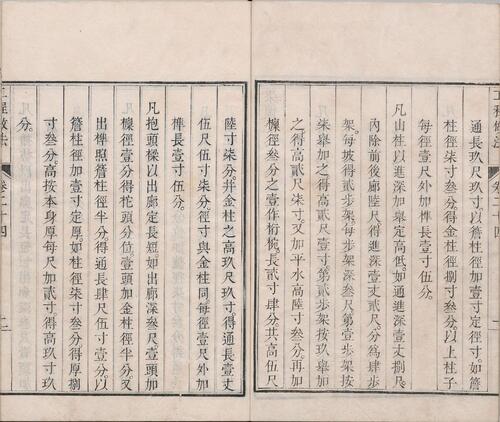 工程做法 卷二十四 一
通長玖尺玖寸。以簷柱徑加壹寸定徑寸。如簷
柱徑柒寸叁分。得金柱徑捌寸叁分。以上柱子
每徑壹尺外加榫長壹寸伍分。
凡山柱以進深加舉定高低。如通進深壹丈捌尺。
內除前後廊陸尺。得進深壹丈貳尺。分爲肆步
架。每坡得貳步架。每步架深叁尺。第壹步架按
柒舉加之。得高貳尺壹寸。第貳步架按玖舉加
之。得高貳尺柒寸。又加平水高陸寸叁分。再加
檁徑叁分之壹作桁椀。長貳寸肆分。共高伍尺
陸寸柒分。并金柱之高玖尺玖寸。得通長壹丈
伍尺伍寸柒分。徑寸與金柱同。每徑壹尺外加
榫長壹寸伍分。
凡抱頭樑以出廊定長短。如出廊深叁尺。壹頭加
檁徑壹分得柁頭分位。壹頭加金柱徑半分。又
出榫照簷柱徑半分。得通長肆尺伍寸壹分。以
簷柱徑加壹寸定厚。如柱徑柒寸叁分。得厚捌
寸叁分。高按本身厚每尺加貳寸。得高玖寸玖
分。
工程做法 卷二十四 二